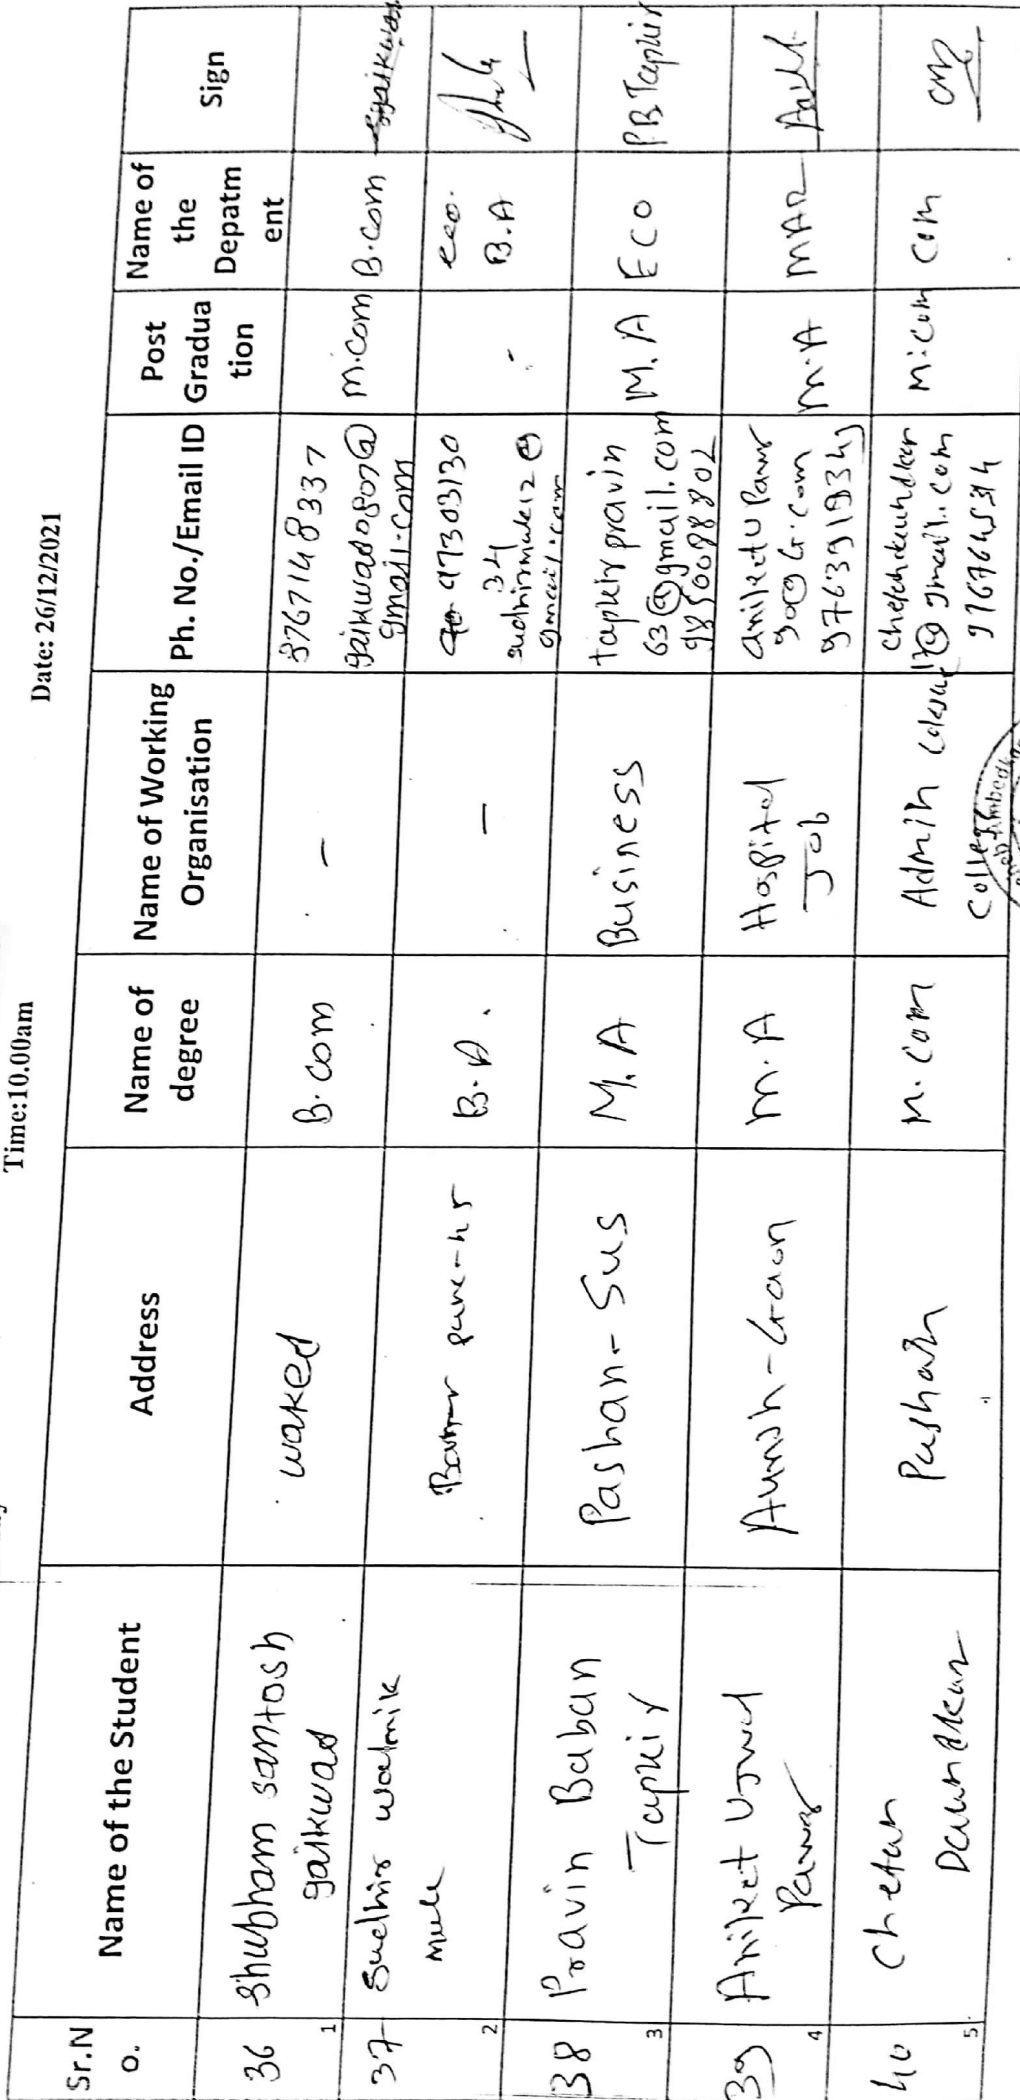 Time:10.00am
Date: 26/12/2021
Sr.N
o.
Name of the Student
Address
Name of
degree
Name of Working
Organisation
Ph. No./Email ID
Post
Gradua
tion
Name of
the
Depatm
ent
Sign
36
1
Shubham santosh
gaikwad
waked
B.com
-
8767148337
gaikwad0807@
gmail.com
M.com
B.com
gaikwad
37
2
Sudhir walmik
Mule
Baner pune-45
B.A.
-
97303130
34
sudhirmule12@
gmail.com
-
eco.
B.A
38
3
Pravin Baban
Tapkir
Pashan-Sus
M.A
Business
tapkirpravin
63@gmail.com
9850088802
M.A
ECO
PBTapkir
39
4
Aniket Ujwal
Pawar
Aundh-Gaon
M.A
Hospital
Job
aniketupawar
90@G.com
9763919349
M.A
MAR
40
5.
Chetan
Daundkar
Pashan
M.com
Admin
College
@gmail.com
9767645314
M.com
Com